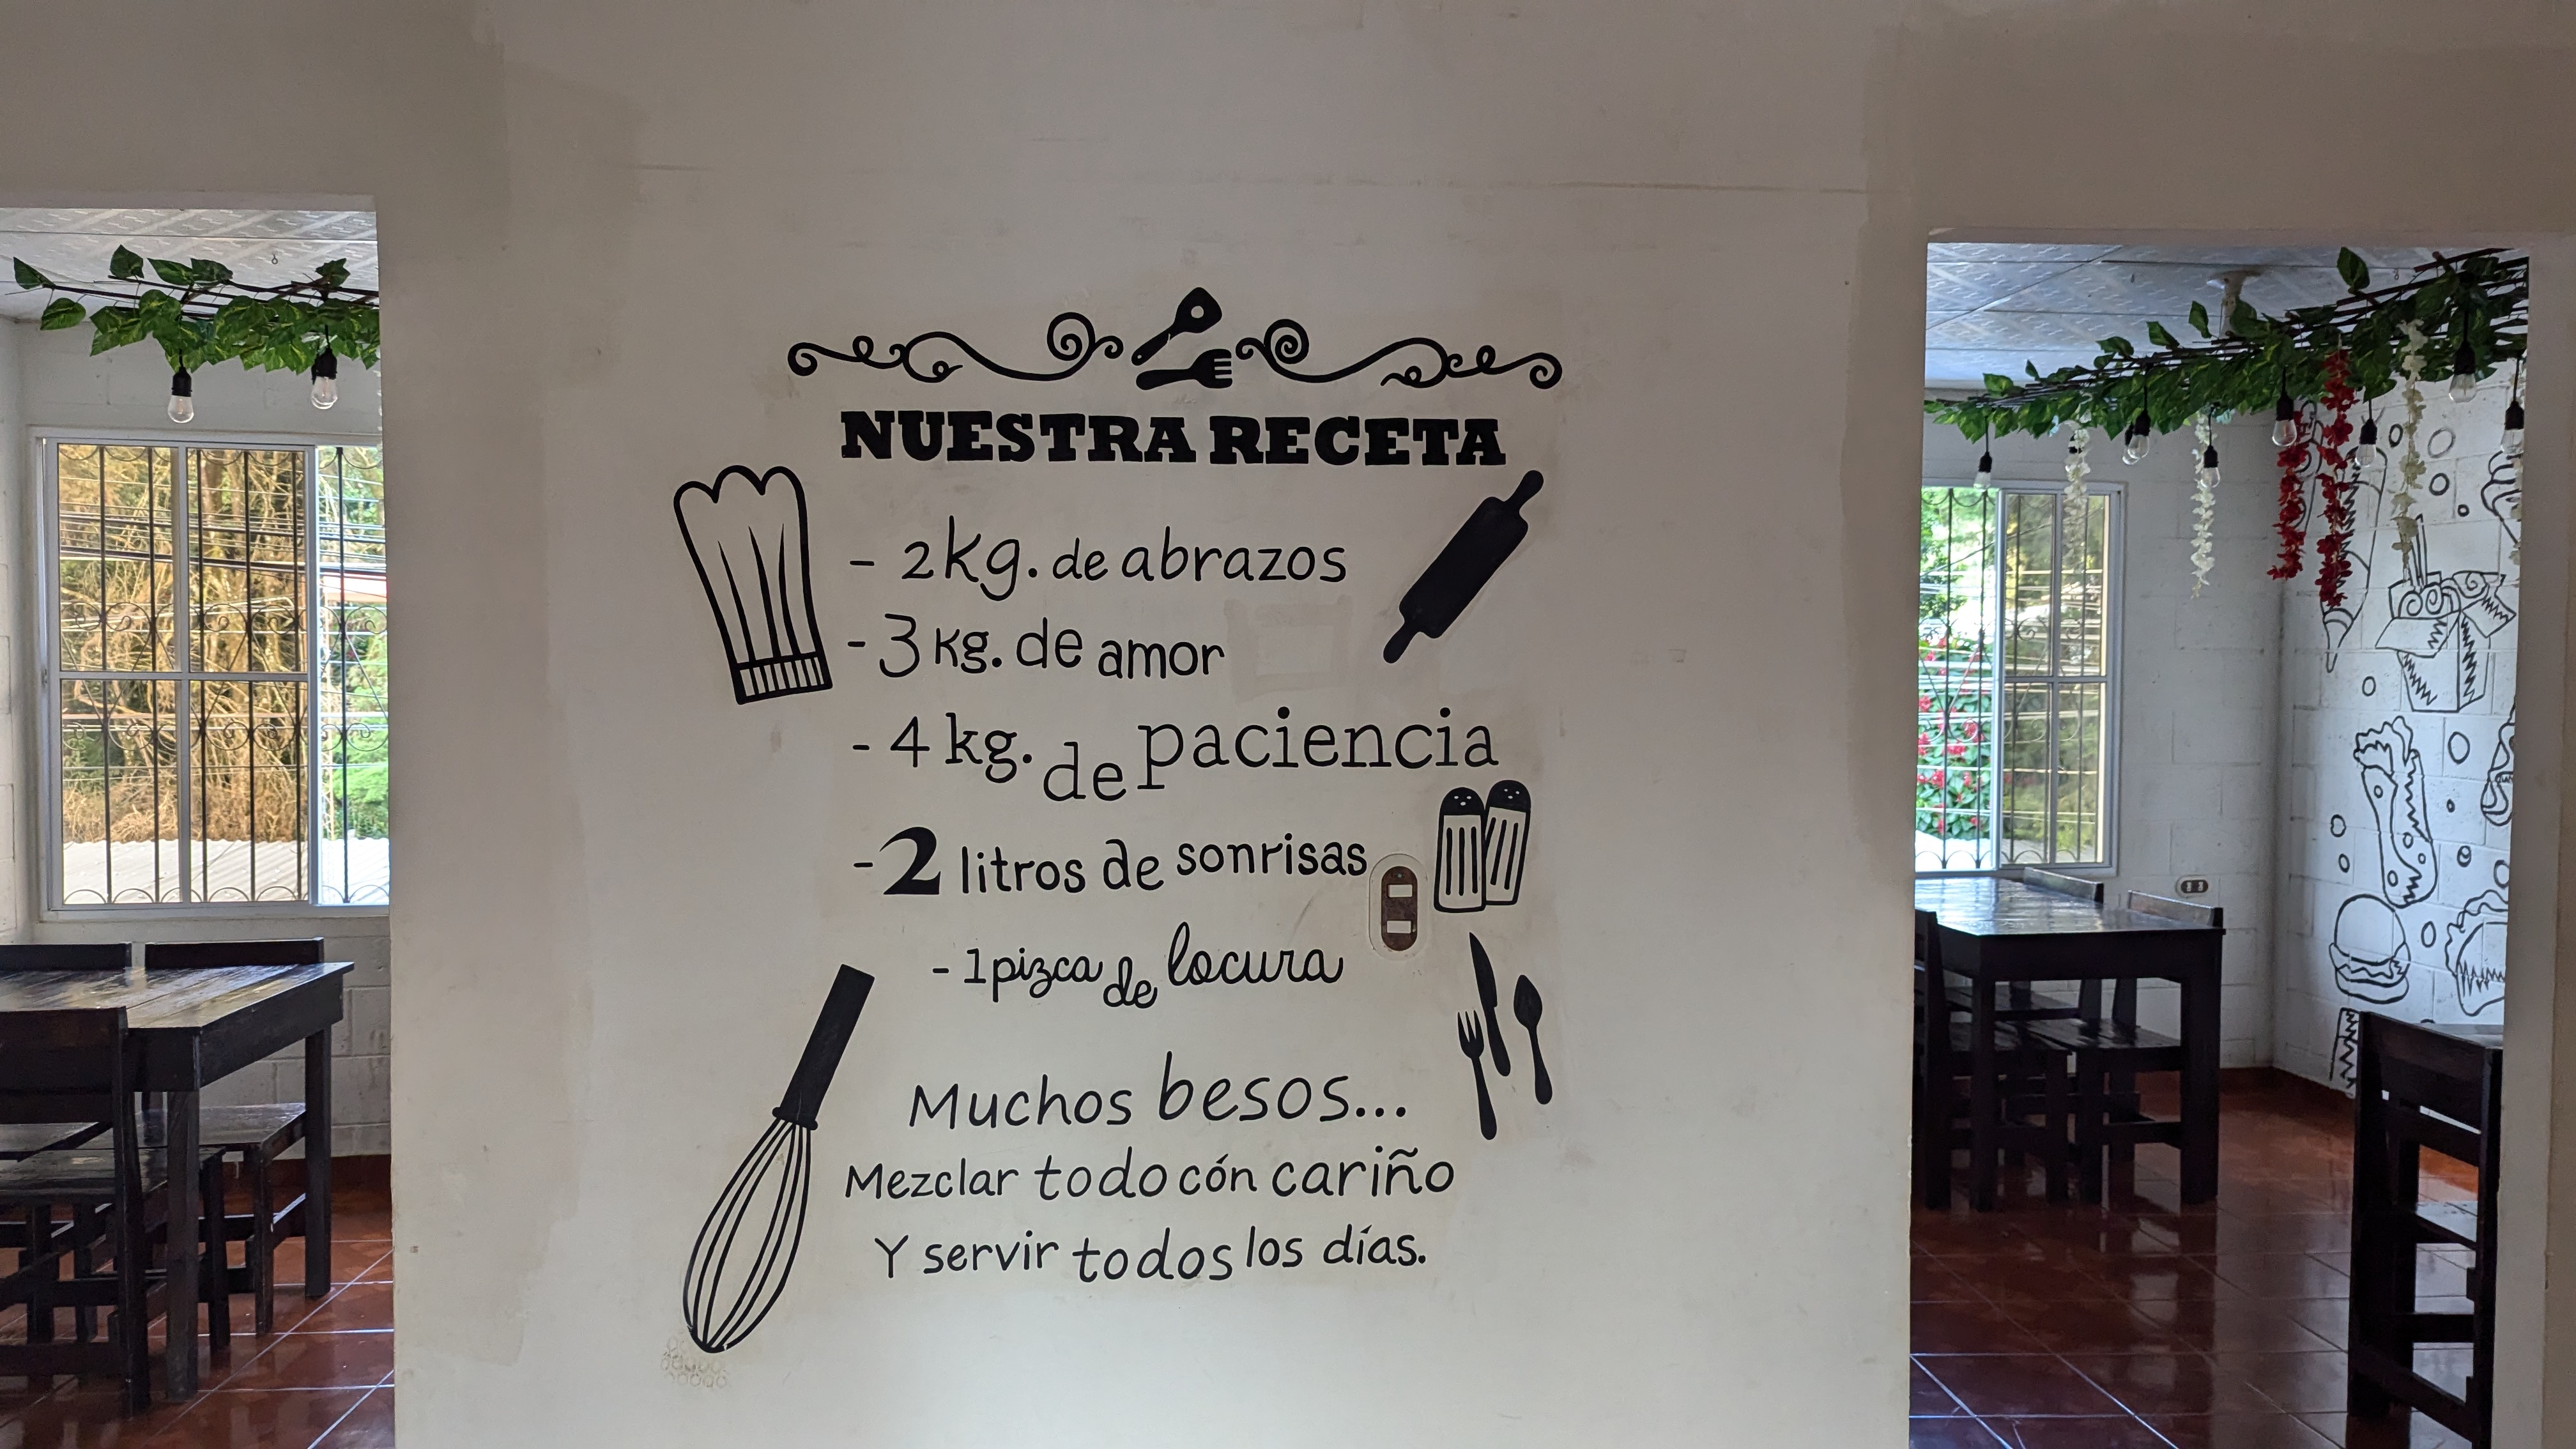 NUESTRA RECETA
- 2kg. de abrazos
- 3 kg. de amor
- 4 kg. de paciencia
- 2 litros de sonrisas
- 1 pizca de locura
Muchos besos...
Mezclar todo cón cariño
Y servir todos los días.